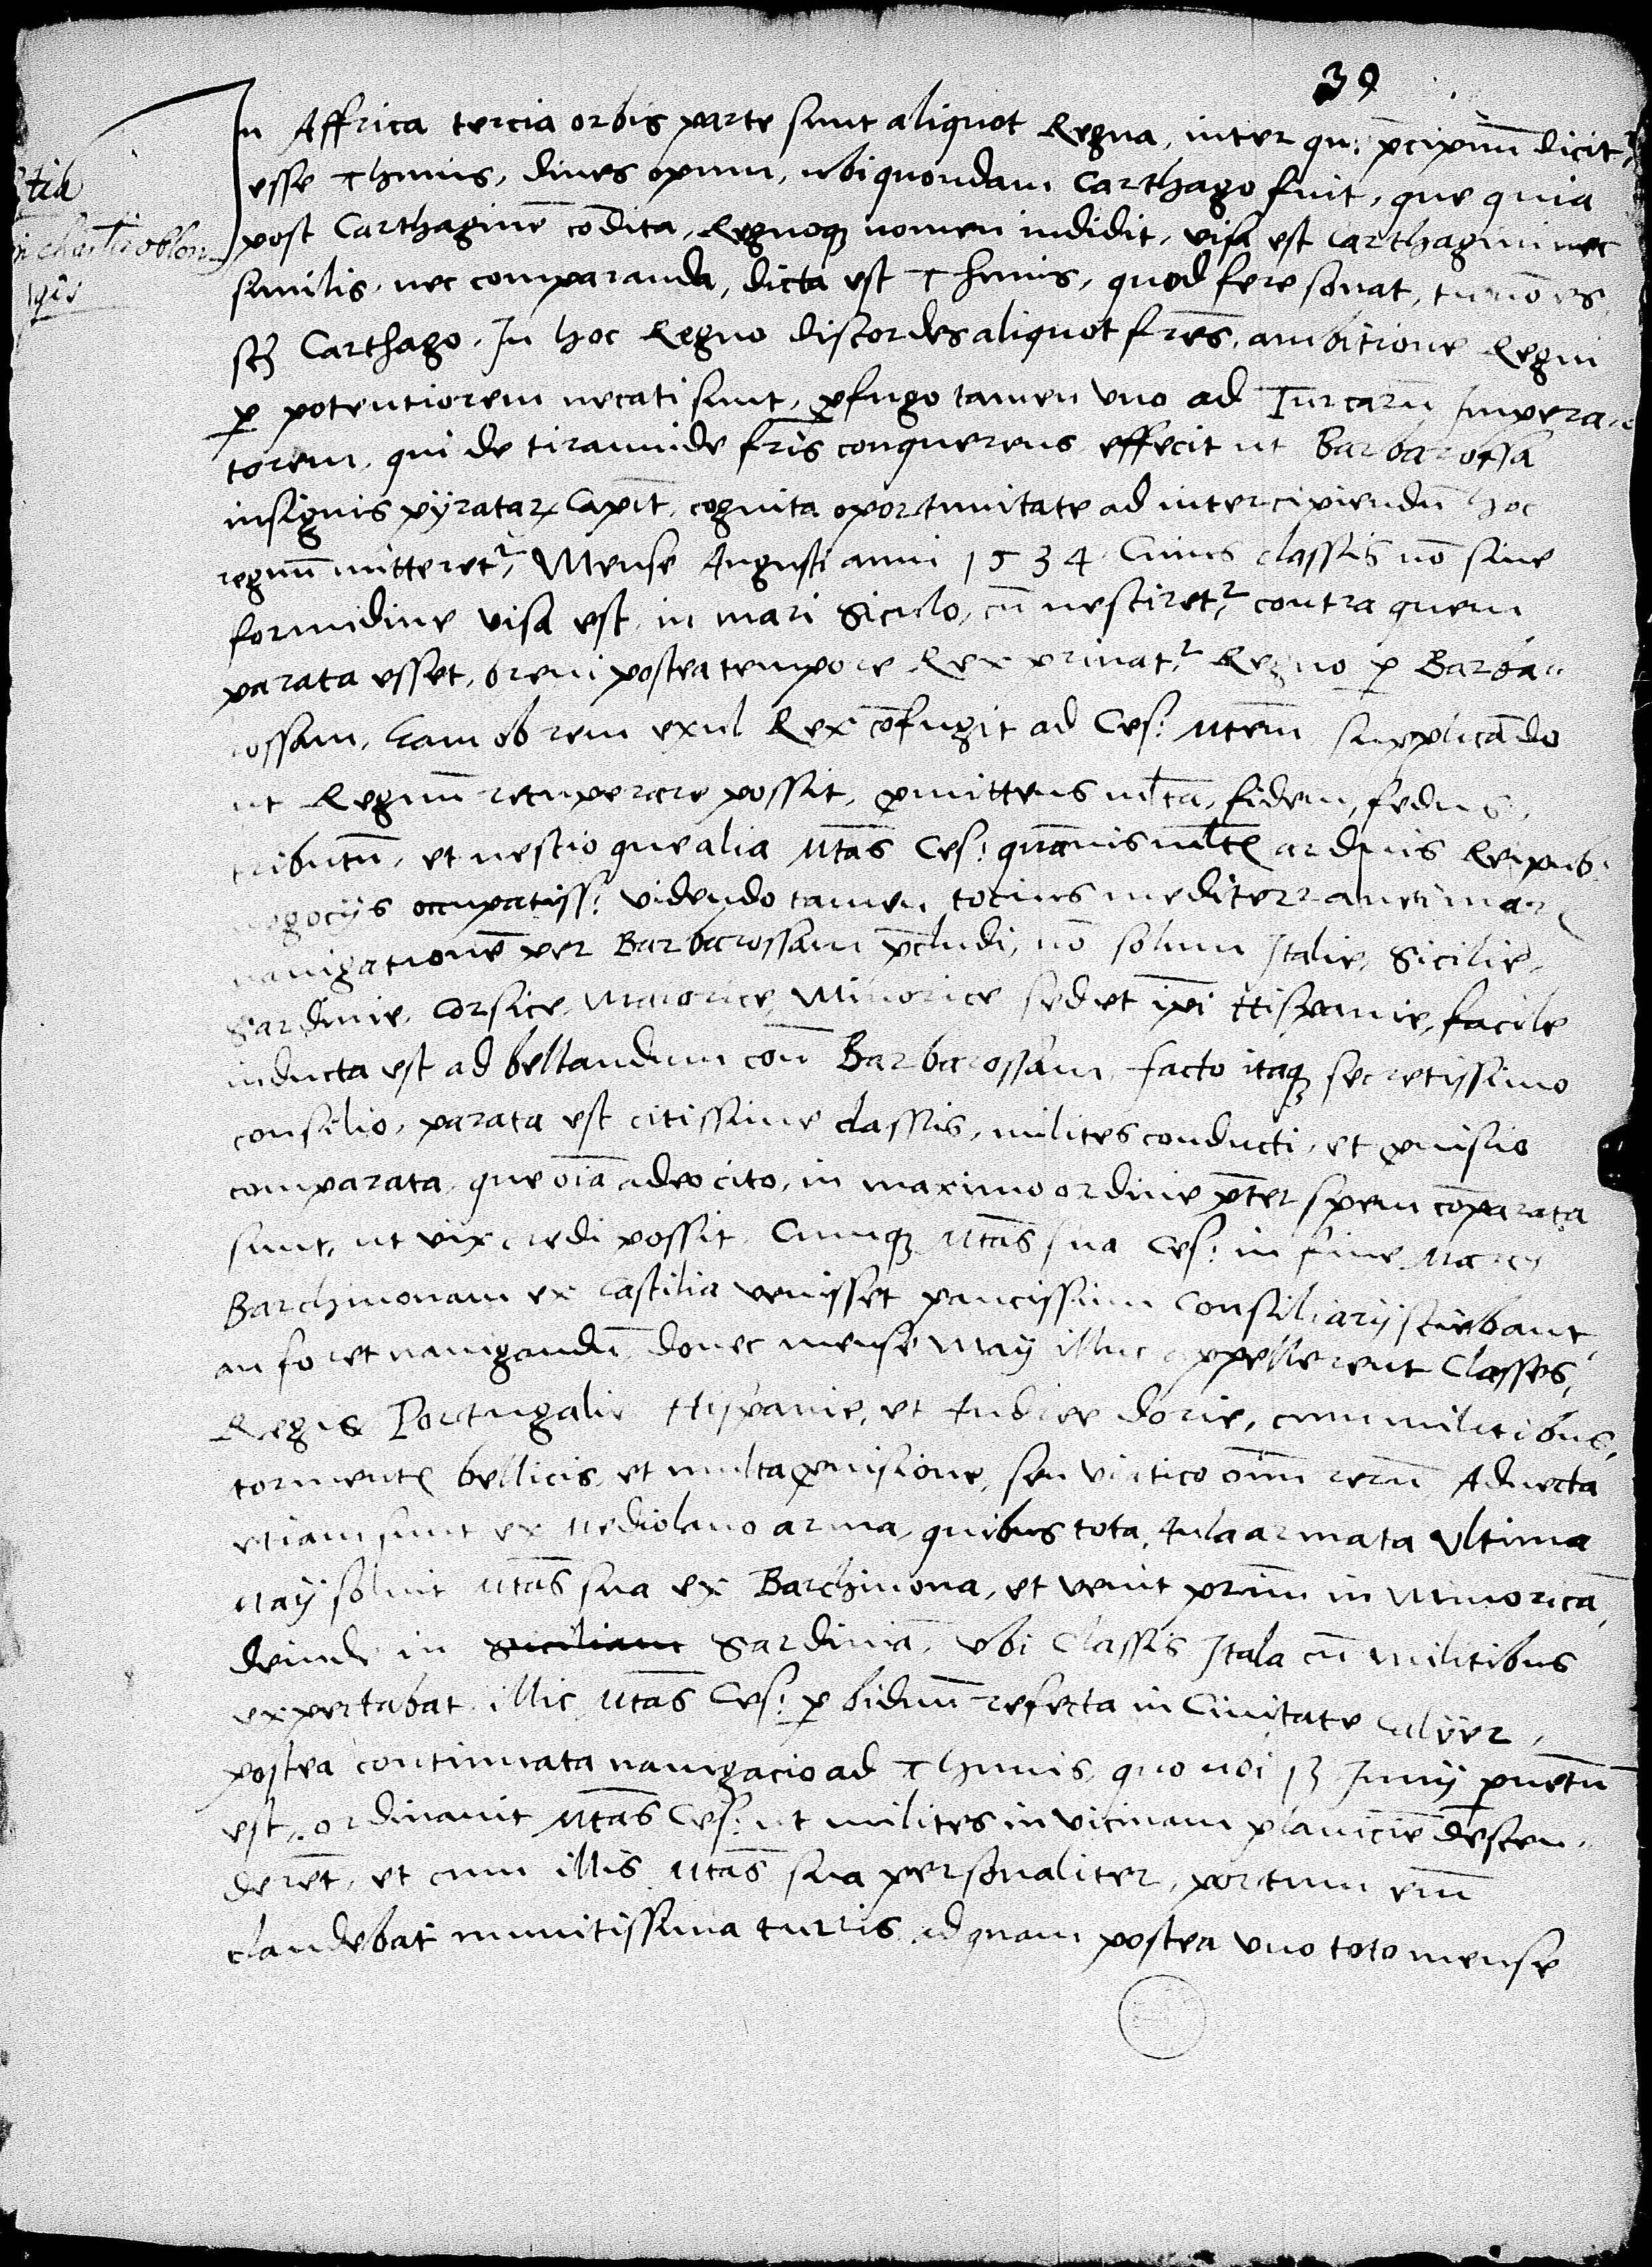 39
In Affrica tercia orbis parte sunt aliquot Regna, inter que p̄cipuū dicit᷑
esse Thunis, diues opum, ubi quondam Carthago fuit, que quia
post Carthaginē cōdita, Regnoqꝫ nomen indidit, visa est Carthagini nec
similis, nec comparanda, dicta est Thunis, quod fere sonat, tu nō es
scꝫ Carthago. In hoc Regno discordes aliquot fr̄es, ambitione Regni
ꝑ potentiorem necati sunt, ꝓfugo tamen vno ad Turcarū Impera-
torem, qui de tirannide fr̄is conquerens effecit ut Barbarossa
insignis pÿrataꝝ Capīt, cognita oportunitate ad intercipiendū hoc
regnū mitteret᷑, Mense Augusti anni 1534. Cuius classis nō sine
formidine visa est, in mari Siculo, cū nesciret᷑ contra quem
parata esset, breui postea tempore Rex priuat᷑ Regno ꝑ Barba-
rossam, Eam ob rem exul Rex cōfugit ad Ces: Mtēm supplicādo
ut Regnū recuperare possit, ꝓmittens mlta, fidem, fedus,
tributū, et nescio que alia Mtās Ces: quāuis mltꝭ arduis Reipub:
negocijs occupatiss: videndo tamen tocius mediterranei maris
nauigationē per Barbarossam p̄cludi, nō solum Italie, Sicilie,
Sardinie, Corsice, Maiorice, Minorice sed et ip̄i Hispanie, facile
inducta est ad bellandum con̄ Barbarossam, facto itaqꝫ secretissimo
consilio, parata est citissime classis, milites conducti, et ꝓuisio
comparata, que oīa adeo cito, in maximo ordine p̄ter spem cōparata
sunt, ut vix credi possit. Cumqꝫ Mtās sua Ces: in fine Marcij
Barchinonam ex Castilia venisset paucissimi Consiliarij sciebant,
an foret nauigandū, donec mense Maij illuc appellerent Classes,
Regis Portugalie Hispanie, et Andree dorie, cum militibus,
tormentꝭ bellicis, et multa ꝓuisione, seu viatico oīm rerū Aduecta
etiam sunt ex Mediolano arma, quibus tota Aula armata vltima
Maij soluit Mtās sua ex Barchinona, et venit primū in Minoricā,
deinde in Siciliam Sardiniā, vbi Classis Itala cū militibus
expectabat. illic Mtās Ces: ꝑ biduū refecta in Ciuitate Calÿer,
postea continuata nauigacio ad Thunis, quo ubi 13 Junij ꝑuētū
est, ordinauit Mtās Ces: ut milites in vicinam planiciē descen-
derēt, et cum illis Mtās sua personaliter, portum enī
claudebat munitissima turris, ad quam postea vno toto mense